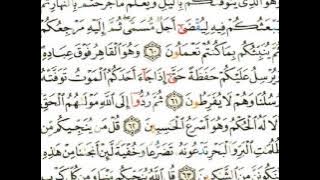 هُوَ الَّذِي يَتَوَفَّىٰكُم بِالَّيْلِ وَيَعْلَمُ مَا جَرَحْتُم بِالنَّهَارِ
يَبْعَثُكُمْ فِيهِ لِيُقْضَىٰٓ أَجَلٌ مُّسَمًّى ثُمَّ إِلَيْهِ مَرْجِعُكُمْ
يُنَبِّئُكُم بِمَا كُنتُمْ تَعْمَلُونَ ٦٠ وَهُوَ الْقَاهِرُ فَوْقَ عِبَادِهِ
يُرْسِلُ عَلَيْكُمْ حَفَظَةً حَتَّىٰٓ إِذَا جَآءَ أَحَدَكُمُ الْمَوْتُ تَوَفَّتْهُ
رُسُلُنَا وَهُمْ لَا يُفَرِّطُونَ ٦١ ثُمَّ رُدُّوٓا۟ إِلَى اللَّهِ مَوْلَىٰهُمُ الْحَقِّ
لَا لَهُ الْحُكْمُ وَهُوَ أَسْرَعُ الْحَٰسِبِينَ ٦٢ قُلْ مَن يُنَجِّيكُم
ظُلُمَٰتِ الْبَرِّ وَالْبَحْرِ تَدْعُونَهُ تَضَرُّعًا وَخُفْيَةً لَّئِنْ أَنجَىٰنَا مِنْ هَٰذِهِ
نَكُونَنَّ مِنَ الشَّٰكِرِينَ ٦٣ قُلِ اللَّهُ يُنَجِّيكُم مِّنْهَا وَمِن كُلِّ كَرْبٍ